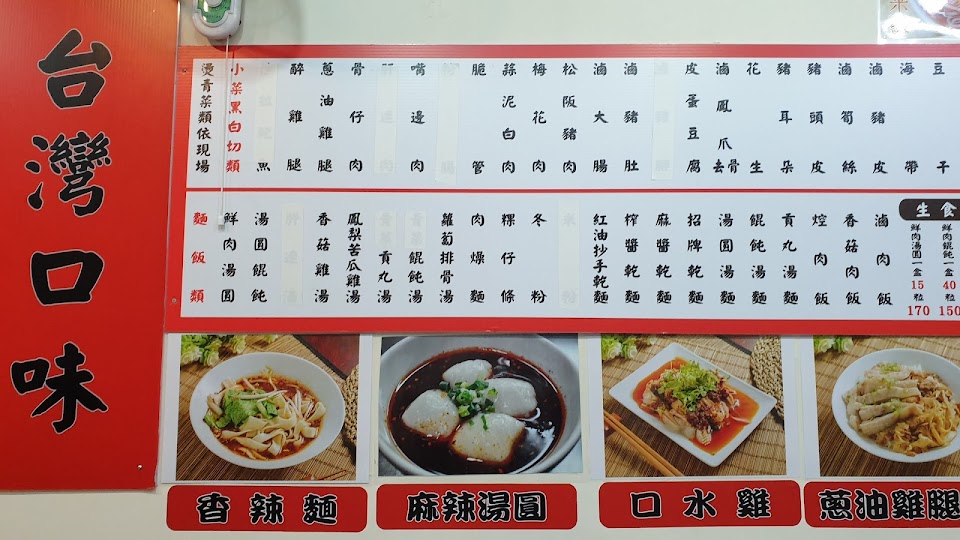 台灣口味
燙青菜類依現場
小菜黑白切類
醉雞腿
蔥油雞腿
骨仔肉
嘴邊肉
脆管
蒜泥白肉
梅花肉
松阪豬肉
滷大腸
滷豬肚
皮蛋豆腐
滷鳳爪去骨
花生
豬耳朵
豬頭皮
滷筍絲
滷豬皮
海帶
豆干
麵飯類
鮮肉湯圓
湯圓餛飩
香菇雞湯
鳳梨苦瓜雞湯
貢丸湯
餛飩湯
蘿蔔排骨湯
肉燥麵
粿仔條
冬粉
紅油抄手乾麵
榨醬乾麵
麻醬乾麵
招牌乾麵
湯圓湯麵
餛飩湯麵
貢丸湯麵
焢肉飯
香菇肉飯
滷肉飯
生食
鮮肉湯圓一盒15粒170
鮮肉餛飩一盒40粒150
香辣麵
麻辣湯圓
口水雞
蔥油雞腿